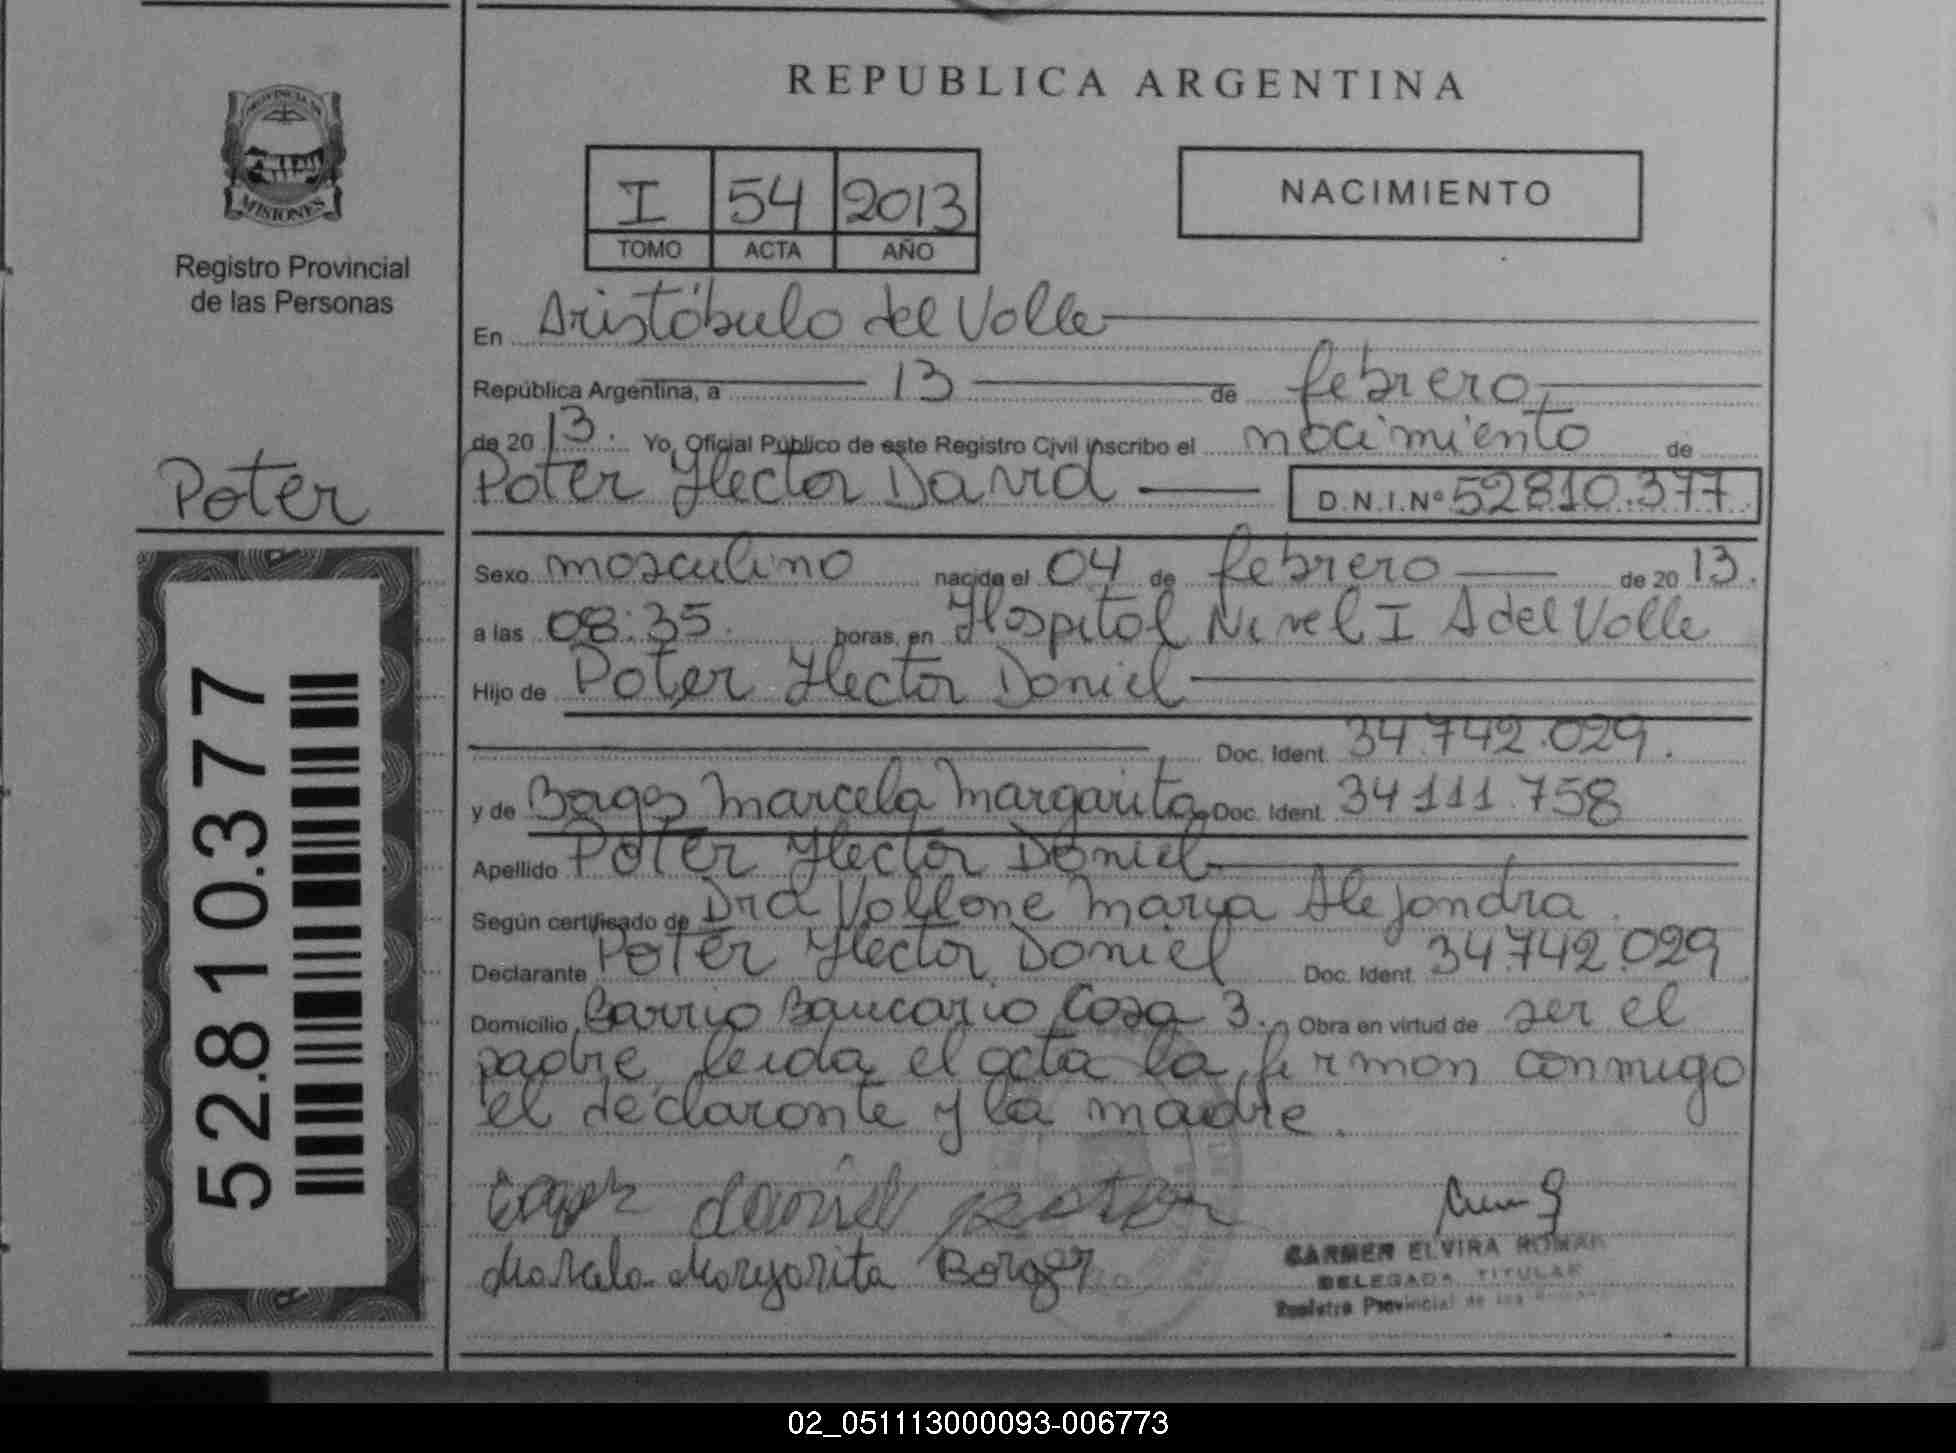 REPUBLICA ARGENTINA
PROVINCIA DE
MISIONES
Registro Provincial
de las Personas
I 54 2013
TOMO ACTA AÑO
NACIMIENTO
En Aristóbulo del Valle
República Argentina, a 13 de febrero
de 20 13. Yo, Oficial Público de este Registro Civil inscribo el nacimiento de
Poter
Poter Hector David D.N.I.Nº 52810.377
Sexo masculino nacido el 04 de febrero de 20 13.
a las 08:35. horas, en Hospital Nivel I A del Valle
Hijo de Poter Hector Daniel
Doc. Ident. 34.742.029.
y de Marcela Margarita Doc. Ident. 34111.758
Apellido Poter Hector Daniel
Según certificado de Dra Vallone Maria Alejandra.
Declarante Poter Hector Daniel Doc. Ident. 34.742.029
Domicilio Barrio Bancario Casa 3. Obra en virtud de ser el
padre, leida el acta la firman conmigo
el declarante y la madre.
52.810.377
daniel poter
Marcela Margarita Borges
CARMEN ELVIRA ROMAN
DELEGADA TITULAR
Registro Provincial de las
02_051113000093-006773